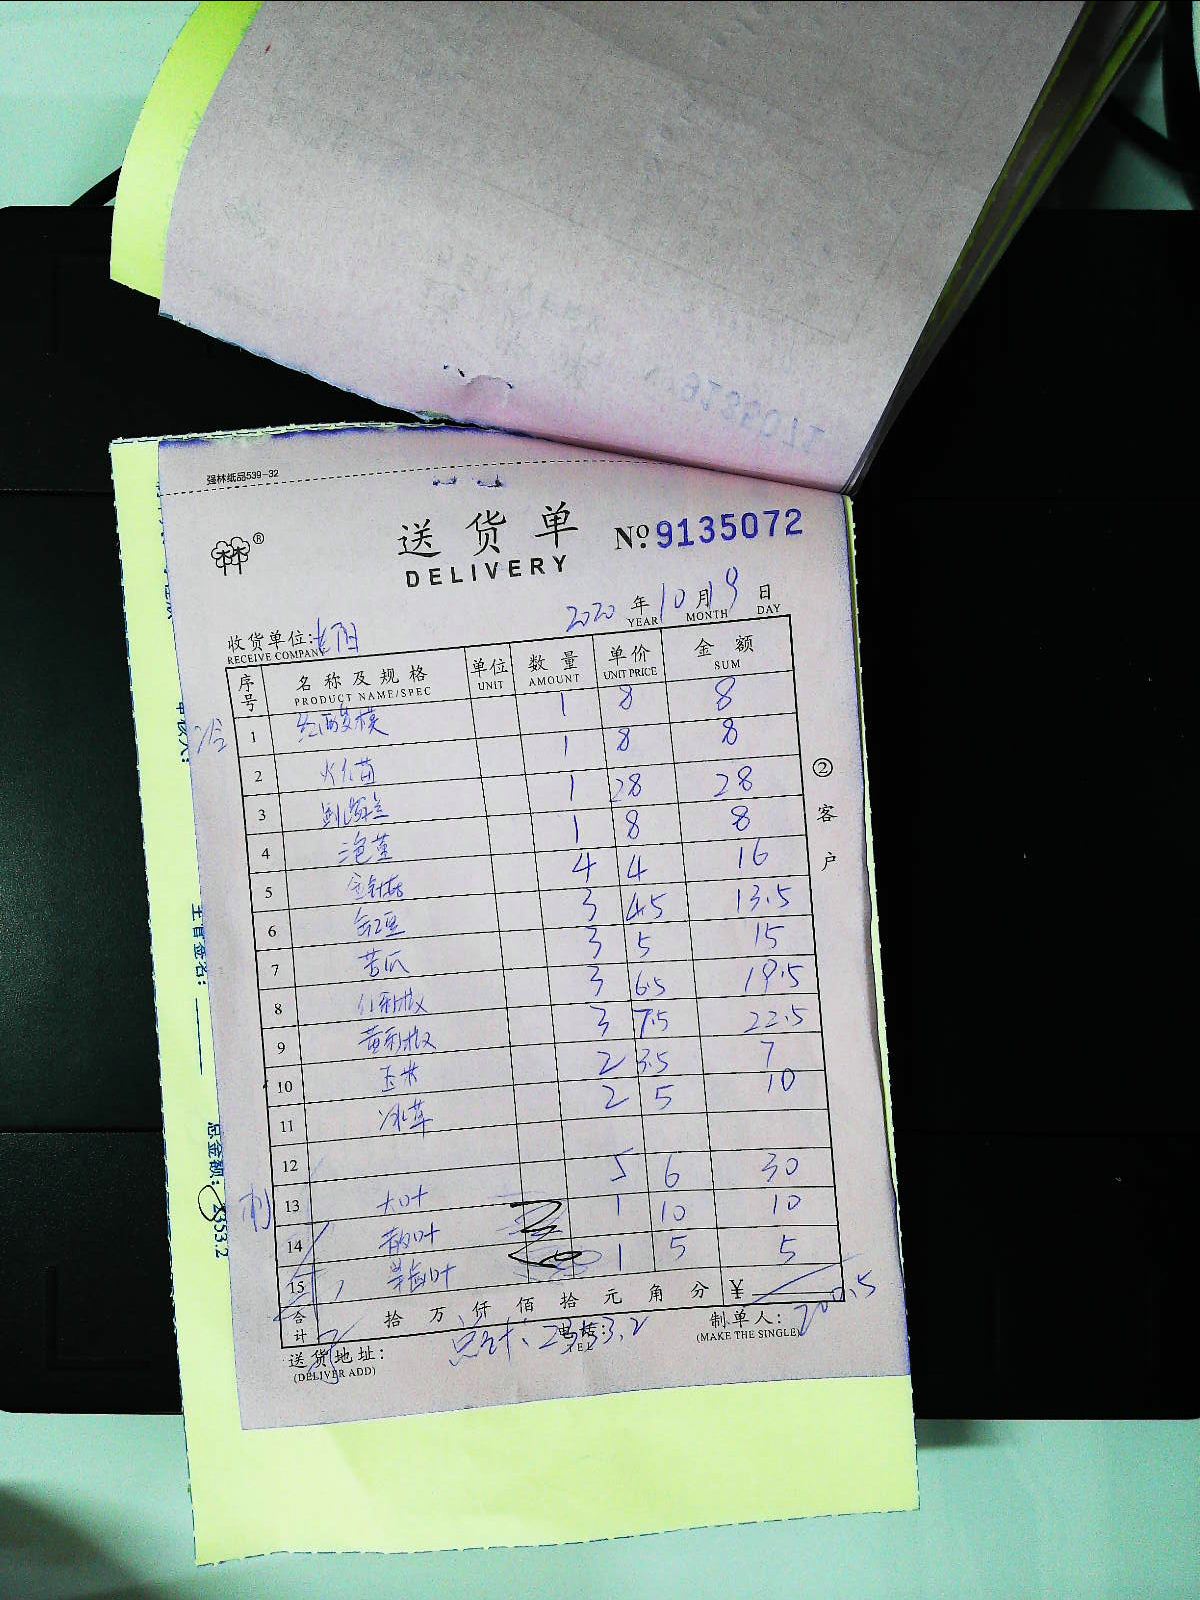 强林纸品539-32
送货单
DELIVERY
№ 9135072
2020 年 10 月 19 日
YEAR MONTH DAY
收货单位:
RECEIVE COMPANY
序号 名称及规格 单位 数量 单价 金额
PRODUCT NAME/SPEC UNIT AMOUNT UNIT PRICE SUM
1 1 8 8
2 1 8 8
3 1 28 28
4 1 8 8
5 金针菇 4 4 16
6 3 4.5 13.5
7 苦瓜 3 5 15
8 3 6.5 19.5
9 3 7.5 22.5
10 玉米 2 3.5 7
11 冰草 2 5 10
12
13 大叶 5 6 30
14 1 10 10
15 1 5 5
合计 拾 万 仟 佰 拾 元 角 分 ¥ 200.5
送货地址:
(DELIVER ADD)
总计: 2353.2
电话:
TEL
制单人:
(MAKE THE SINGLE)
② 客户
主管签名:
总金额: 2353.2